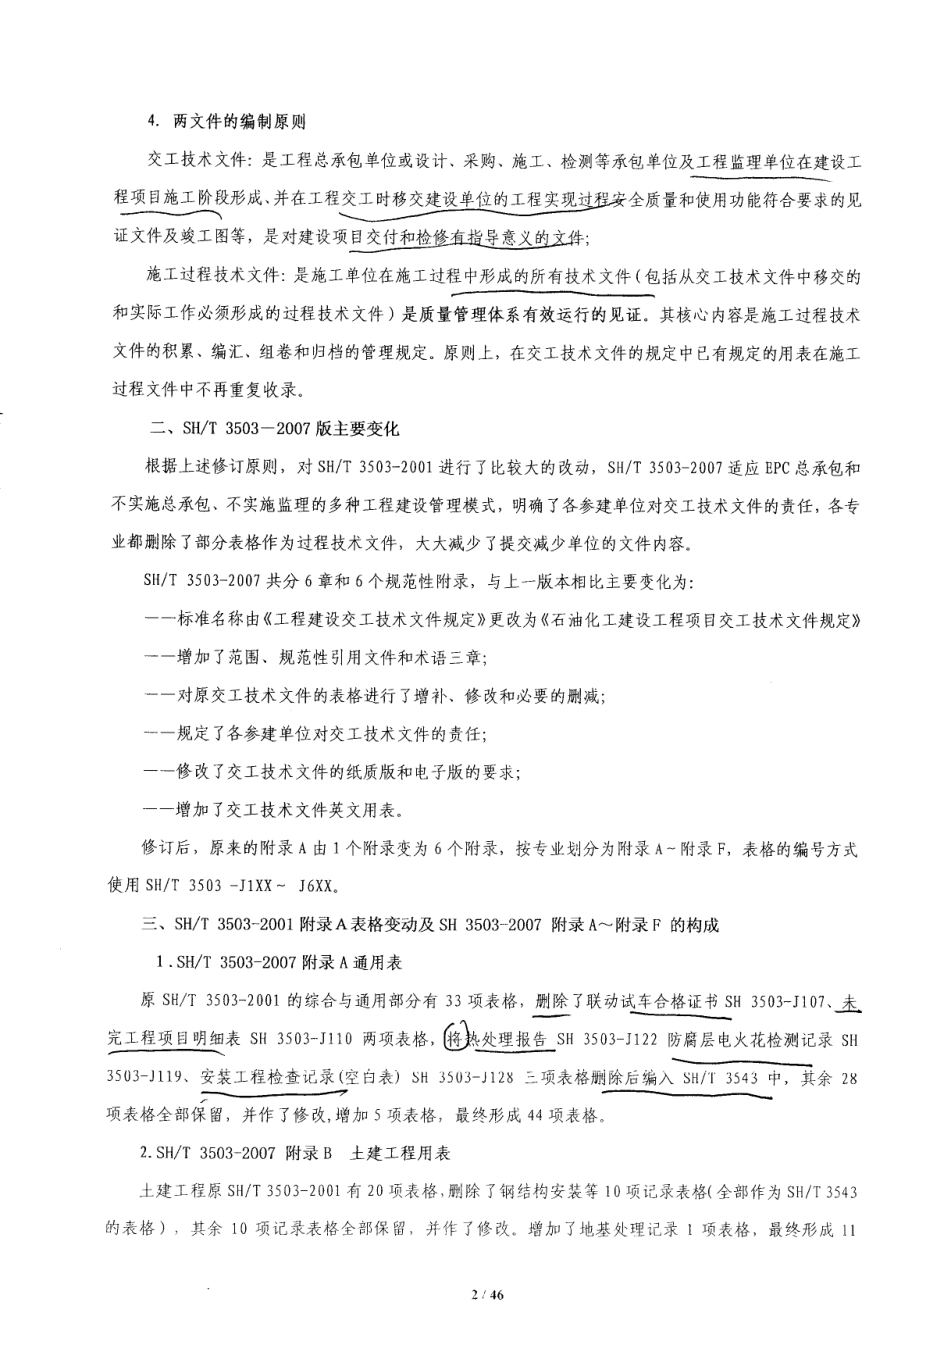 4. 两文件的编制原则
交工技术文件: 是工程总承包单位或设计、采购、施工、检测等承包单位及工程监理单位在建设工
程项目施工阶段形成、并在工程交工时移交建设单位的工程实现过程安全质量和使用功能符合要求的见
证文件及竣工图等，是对建设项目交付和检修有指导意义的文件;
施工过程技术文件: 是施工单位在施工过程中形成的所有技术文件(包括从交工技术文件中移交的
和实际工作必须形成的过程技术文件)是质量管理体系有效运行的见证。其核心内容是施工过程技术
文件的积累、编汇、组卷和归档的管理规定。原则上，在交工技术文件的规定中已有规定的用表在施工
过程文件中不再重复收录。
二、SH/T 3503－2007 版主要变化
根据上述修订原则，对 SH/T 3503-2001 进行了比较大的改动，SH/T 3503-2007 适应 EPC 总承包和
不实施总承包、不实施监理的多种工程建设管理模式，明确了各参建单位对交工技术文件的责任，各专
业都删除了部分表格作为过程技术文件，大大减少了提交减少单位的文件内容。
SH/T 3503-2007 共分 6 章和 6 个规范性附录，与上一版本相比主要变化为:
——标准名称由《工程建设交工技术文件规定》更改为《石油化工建设工程项目交工技术文件规定》
——增加了范围、规范性引用文件和术语三章;
——对原交工技术文件的表格进行了增补、修改和必要的删减;
——规定了各参建单位对交工技术文件的责任;
——修改了交工技术文件的纸质版和电子版的要求;
——增加了交工技术文件英文用表。
修订后，原来的附录 A 由 1 个附录变为 6 个附录，按专业划分为附录 A～附录 F，表格的编号方式
使用 SH/T 3503 -J1XX～ J6XX。
三、SH/T 3503-2001 附录 A 表格变动及 SH 3503-2007 附录 A～附录 F 的构成
1.SH/T 3503-2007 附录 A 通用表
原 SH/T 3503-2001 的综合与通用部分有 33 项表格，删除了联动试车合格证书 SH 3503-J107、未
完工程项目明细表 SH 3503-J110 两项表格，将热处理报告 SH 3503-J122 防腐层电火花检测记录 SH
3503-J119、安装工程检查记录(空白表) SH 3503-J128 三项表格删除后编入 SH/T 3543 中，其余 28
项表格全部保留，并作了修改,增加 5 项表格，最终形成 44 项表格。
2.SH/T 3503-2007 附录 B 土建工程用表
土建工程原 SH/T 3503-2001 有 20 项表格,删除了钢结构安装等 10 项记录表格(全部作为 SH/T 3543
的表格)，其余 10 项记录表格全部保留，并作了修改。增加了地基处理记录 1 项表格，最终形成 11
2 / 46